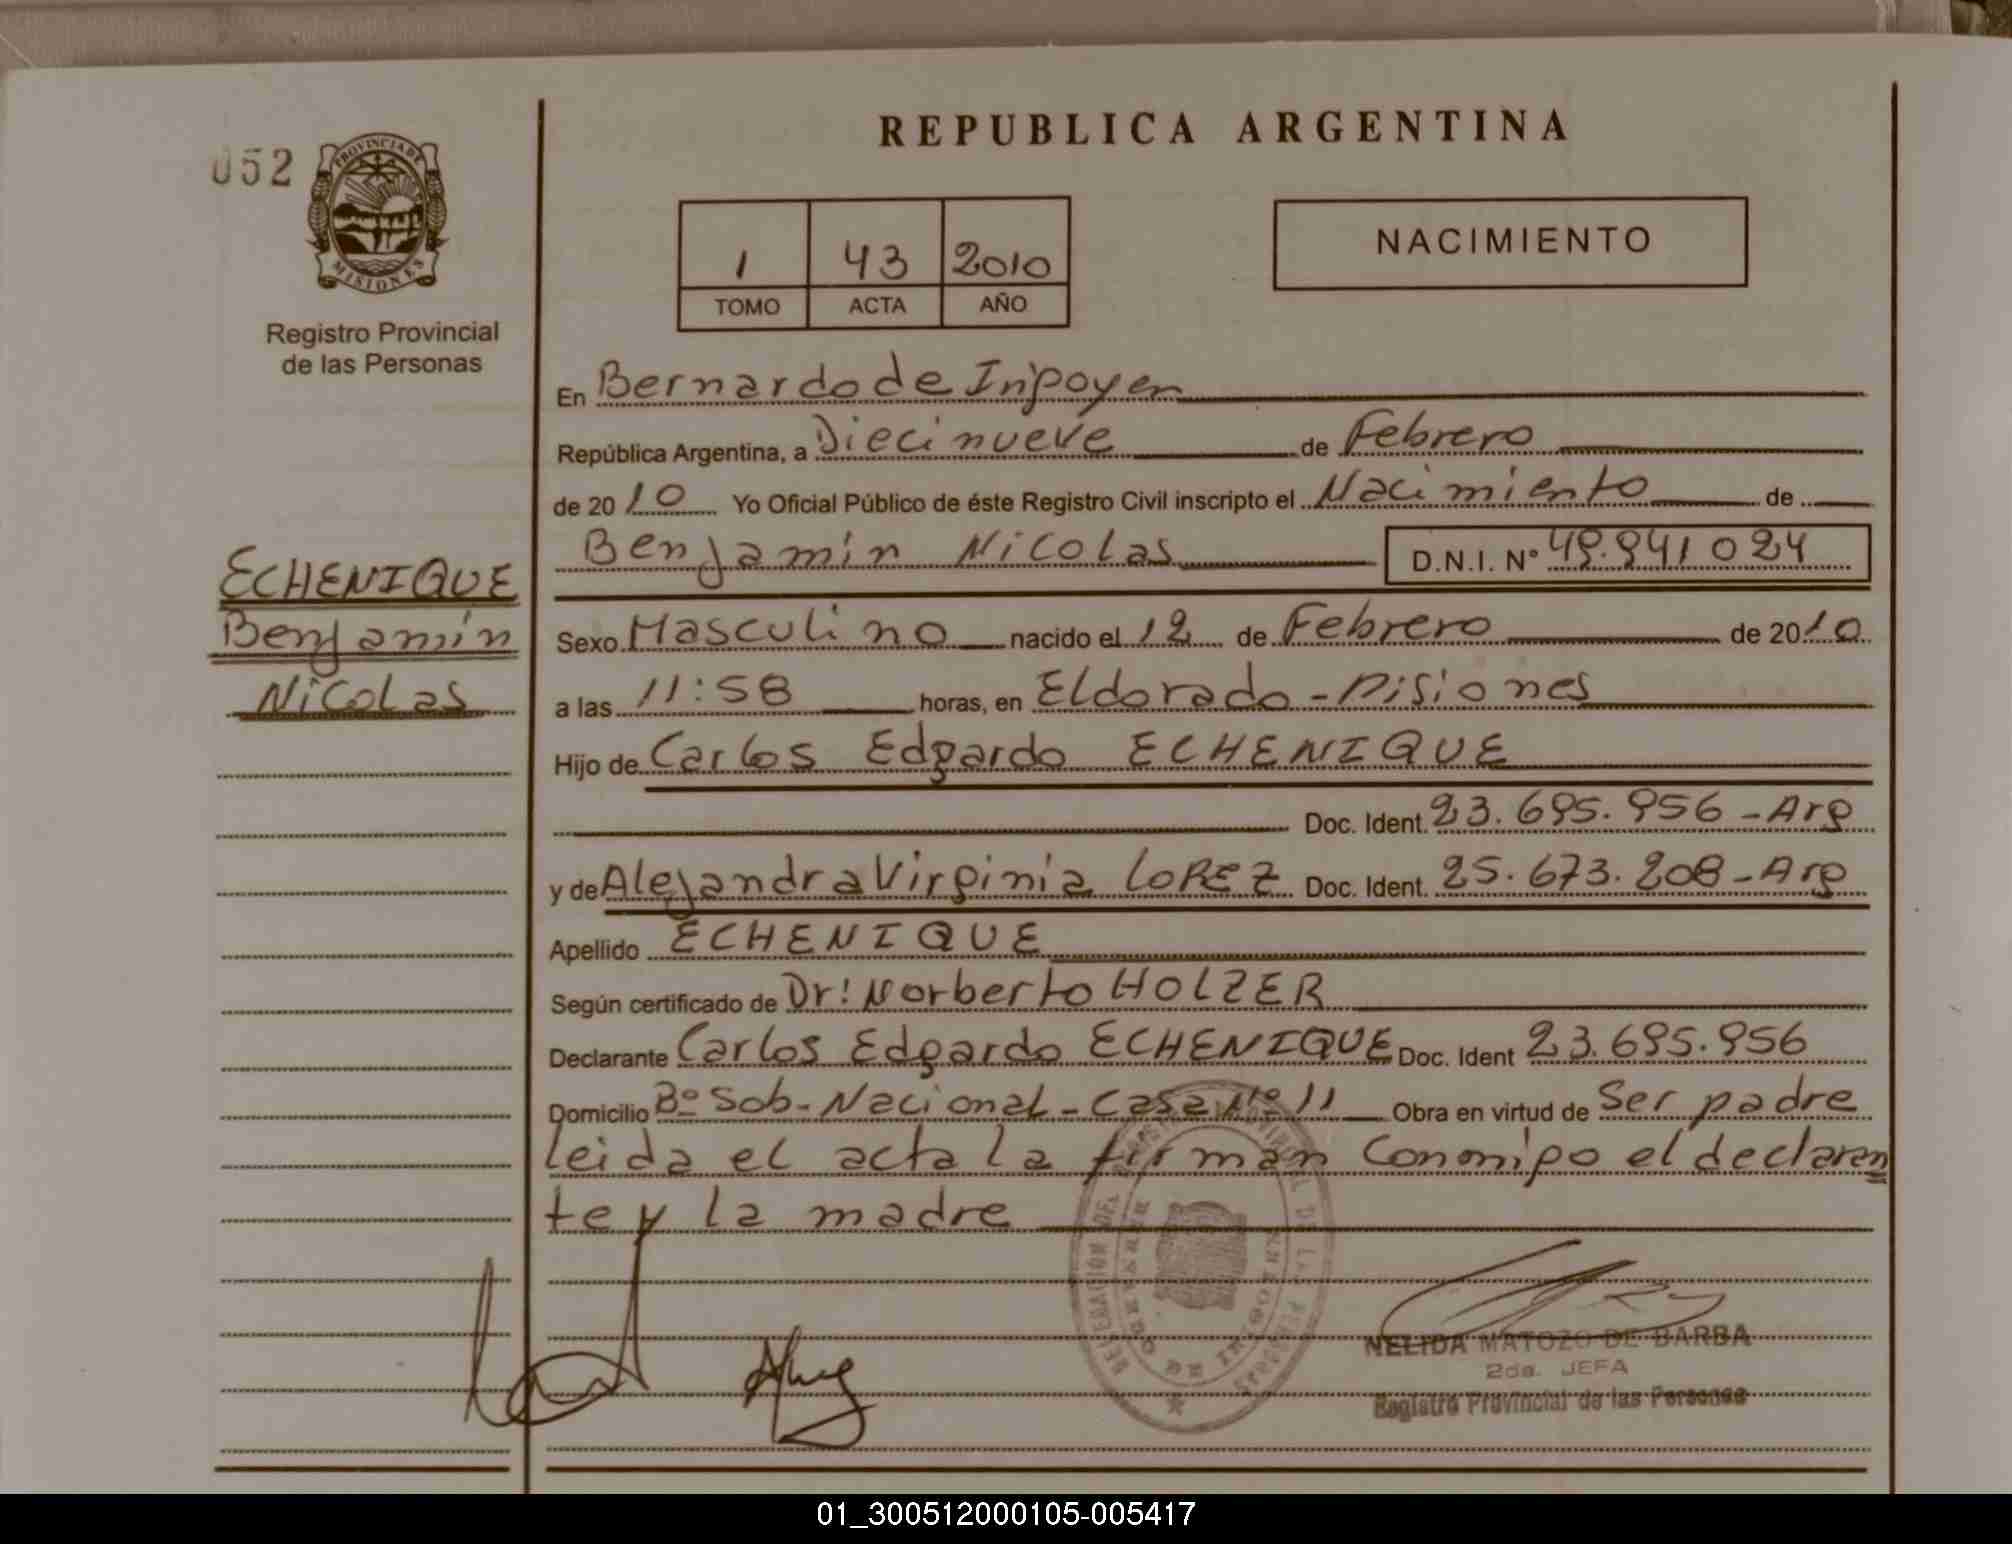 REPUBLICA ARGENTINA
052
PROVINCIA DE
MISIONES
Registro Provincial
de las Personas
1 43 2010
TOMO ACTA AÑO
NACIMIENTO
En Bernardo de Iripoyen
República Argentina, a Diecinueve de Febrero
de 2010 Yo Oficial Público de éste Registro Civil inscripto el Nacimiento de
Benjamín Nicolas D.N.I. Nº 49.941024
ECHENIQUE
Benjamín
Nicolas
Sexo Masculino nacido el 12 de Febrero de 2010
a las 11:58 horas, en Eldorado - Misiones
Hijo de Carlos Edgardo ECHENIQUE
Doc. Ident. 23.695.956 - Arg
y de Alejandra Virginia LOPEZ Doc. Ident. 25.673.208 - Arg
Apellido ECHENIQUE
Según certificado de Dr: Norberto HOLZER
Declarante Carlos Edgardo ECHENIQUE Doc. Ident 23.695.956
Domicilio Bº Sob- Nacional - Casa Nº 11 Obra en virtud de Ser padre
leida el acta la firman Conmigo el declaran
te y la madre
NELIDA MATOZO DE BARBA
2da. JEFA
Registro Provincial de las Personas
01_300512000105-005417